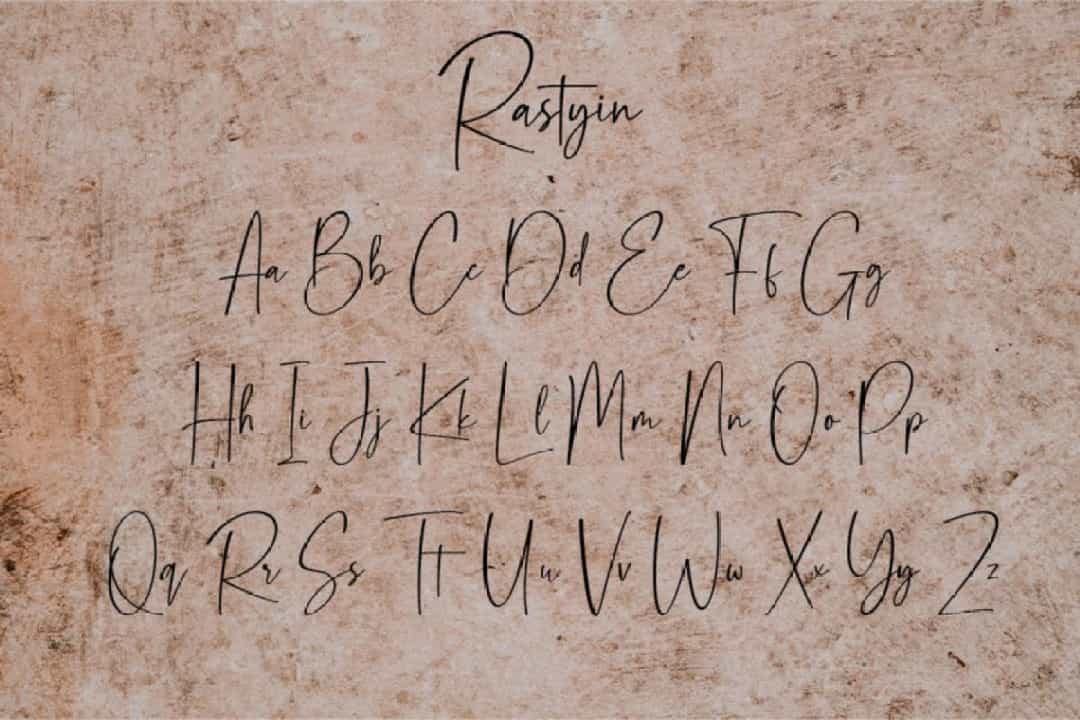 Rastyin
Aa Bb Cc Dd Ee Ff Gg
Hh Ii Jj Kk Ll Mm Nn Oo Pp
Qq Rr Ss Tt Uu Vv Ww Xx Yy Zz